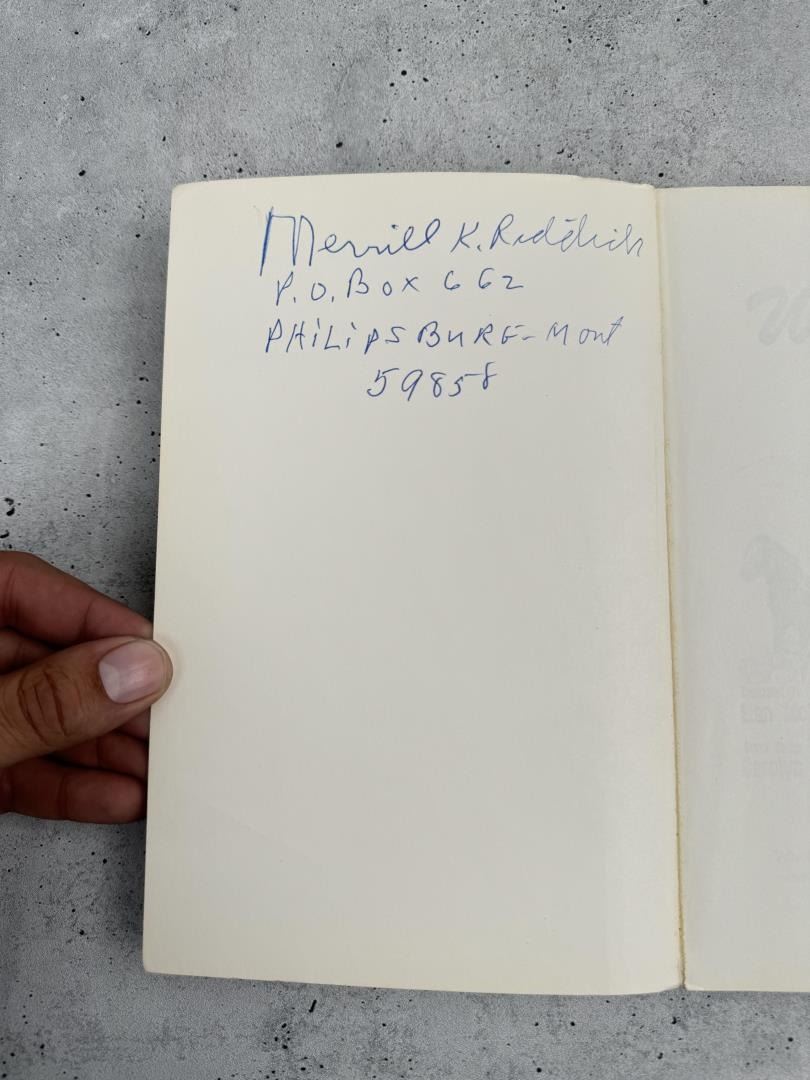 Merrill K. Riddick
P.O. Box 662
PHILIPSBURG-Mont
59858